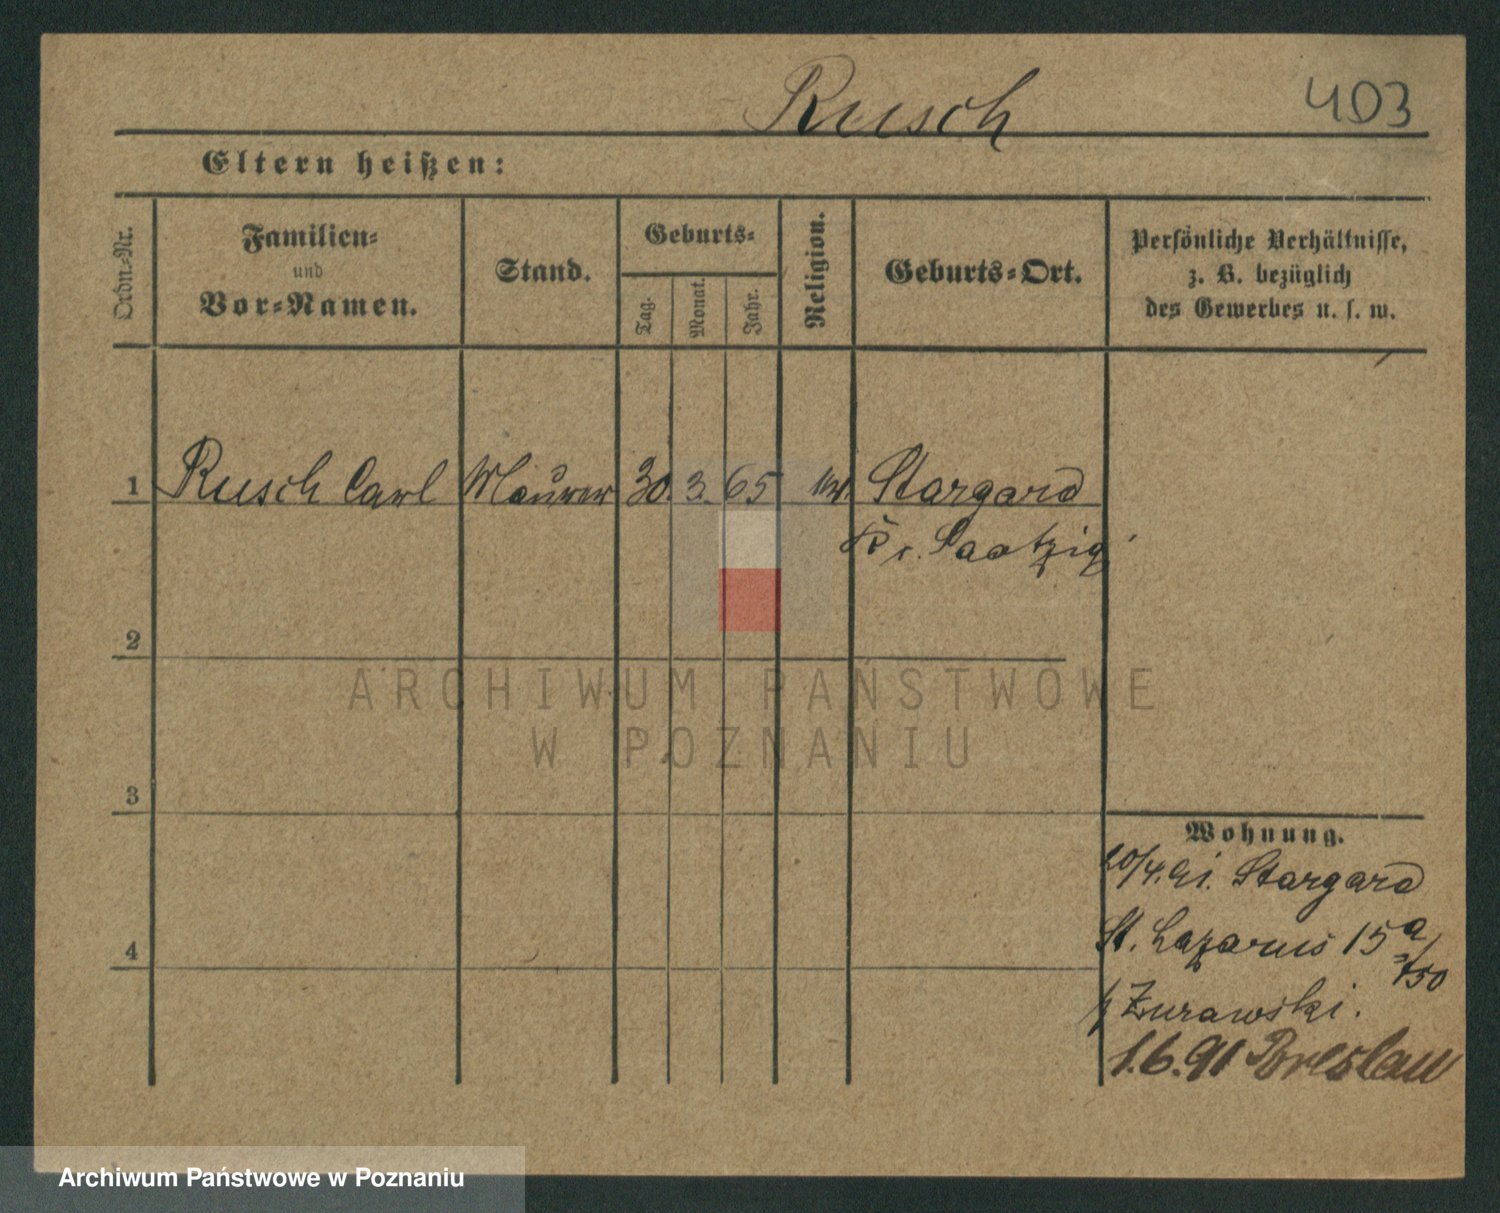 Rusch 403
Eltern heißen:
Ordn.-Nr.
Familien-
und
Vor-Namen.
Stand.
Geburts-
Tag.
Monat.
Jahr.
Religion.
Geburts-Ort.
Persönliche Verhältnisse,
z. B. bezüglich
des Gewerbes u. s. w.
1 Rusch Carl Maurer 30. 3. 65 Stargard
Kr. Saatzig
2
ARCHIWUM PAŃSTWOWE
W POZNANIU
3
Wohnung.
20/4.91. Stargard
4
St. Lazarus 15 a/
750
Żurawski.
1.6.91 Breslau
Archiwum Państwowe w Poznaniu